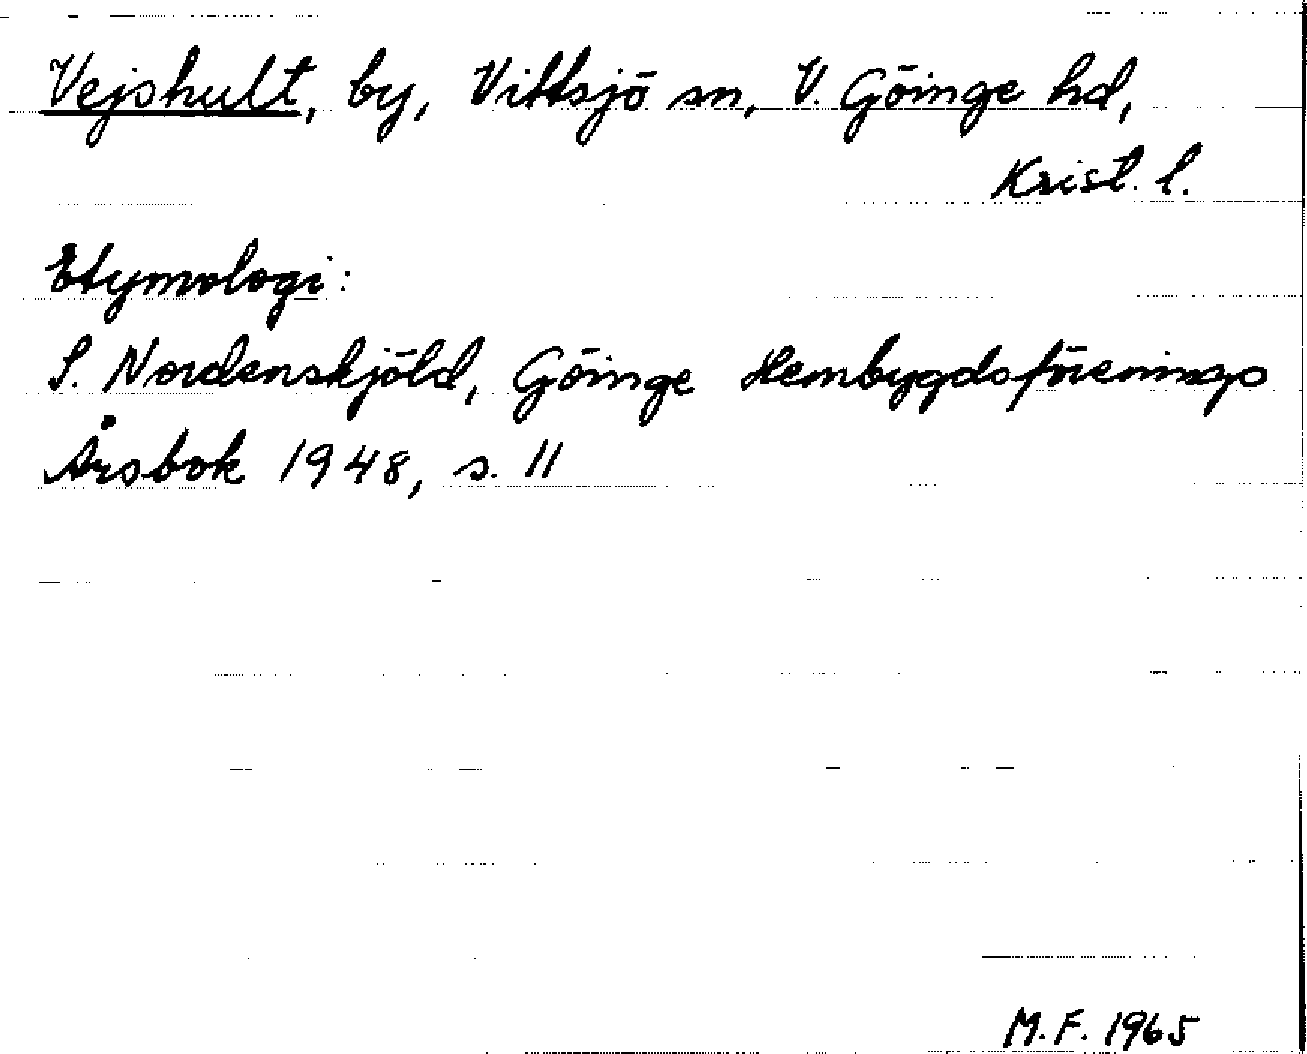 Vejshult, by, Vittsjö sn, V. Göinge hd,
Krist. l.
Etymologi:
S. Nordenskjöld, Göinge Hembygdsförenings
Årsbok 1948, s. 11
M.F. 1965